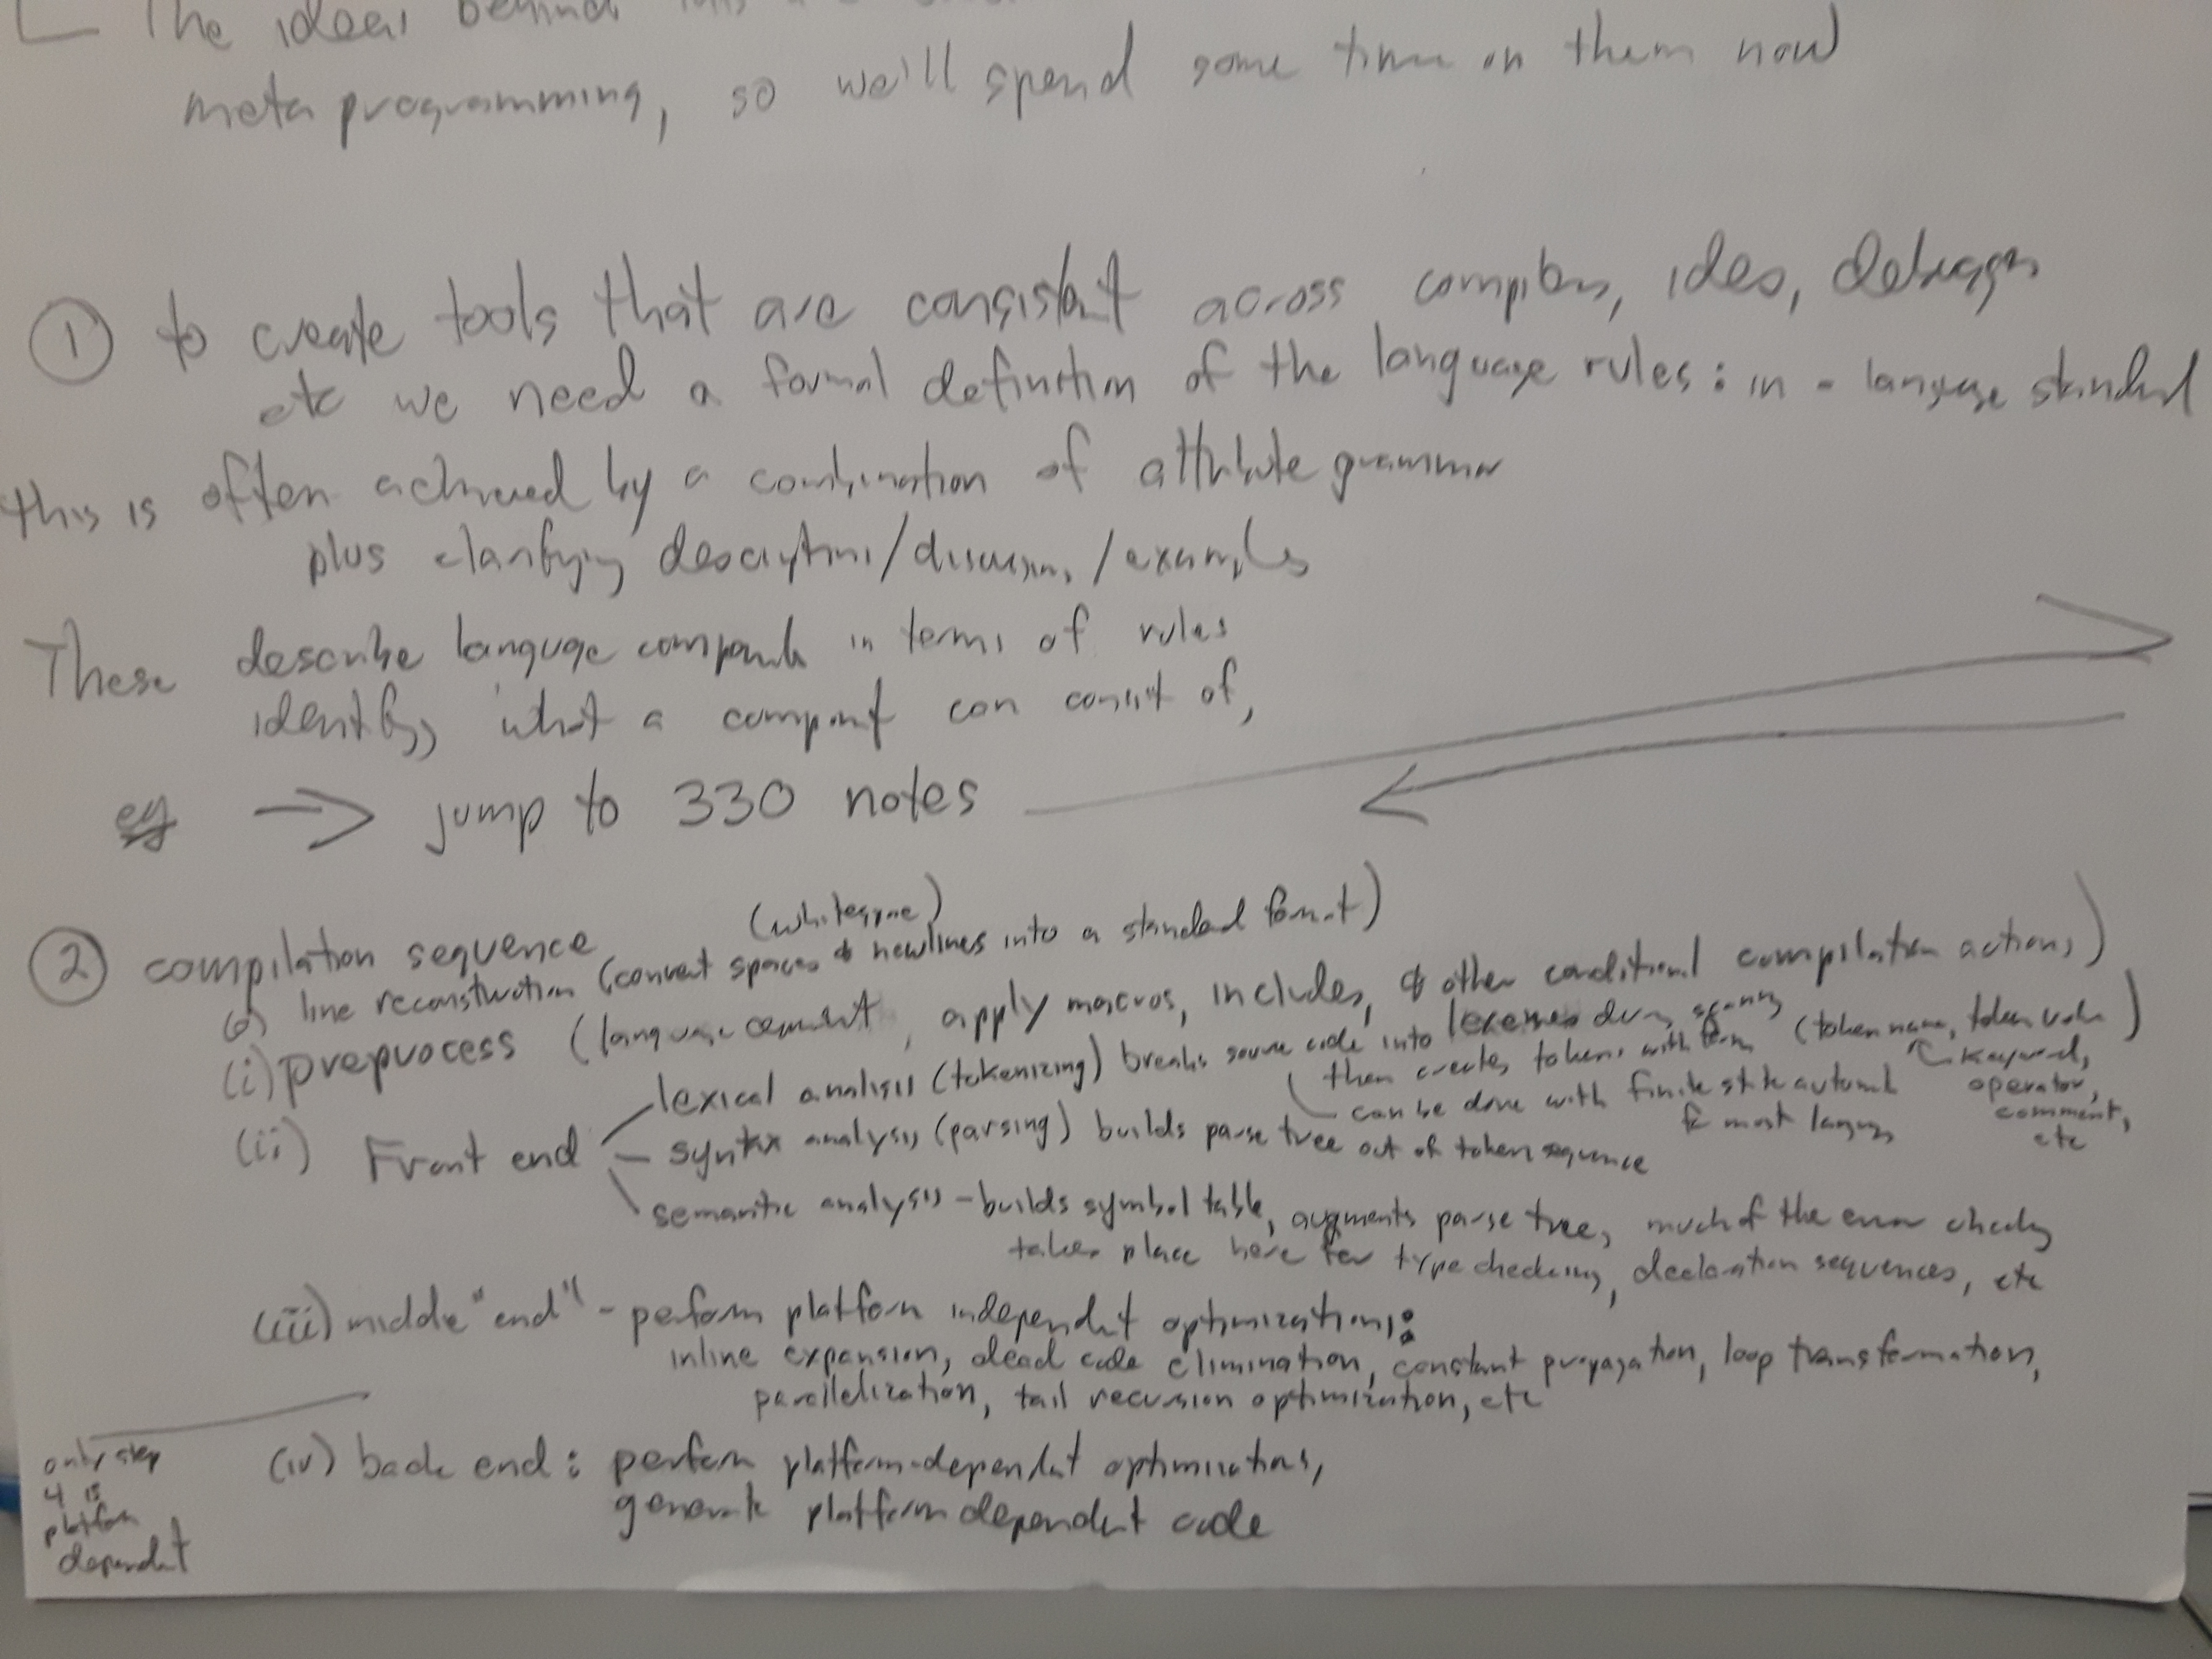 The ideas behind
meta programming, so we'll spend some time on them now
① to create tools that are consistent across compilers, ides, debuggers
etc we need a formal definition of the language rules: in a language standard
this is often achieved by a combination of attribute grammar
plus clarifying descriptions/discussions/examples
These describe language components in terms of rules
identifying what a component can consist of,
eg → jump to 330 notes
② compilation sequence
(whitespace)
(o) line reconstruction (convert spaces & newlines into a standard format)
(i) preprocess (language, apply macros, includes, & other conditional compilation actions)
(ii) Front end
lexical analysis (tokenizing) breaks source code into lexemes during scanning
then creates tokens with form (token name, token value)
keyword,
operator,
comment,
etc
can be done with finite state automata
for most languages
syntax analysis (parsing) builds parse tree out of token sequence
semantic analysis - builds symbol table, augments parse tree, much of the error checking
takes place here for type checking, declaration sequences, etc
(iii) middle "end" - perform platform independent optimizations:
inline expansion, dead code elimination, constant propagation, loop transformation,
parallelization, tail recursion optimization, etc
only step
4 is
platform
dependent
(iv) back end: perform platform-dependent optimizations,
generate platform dependent code